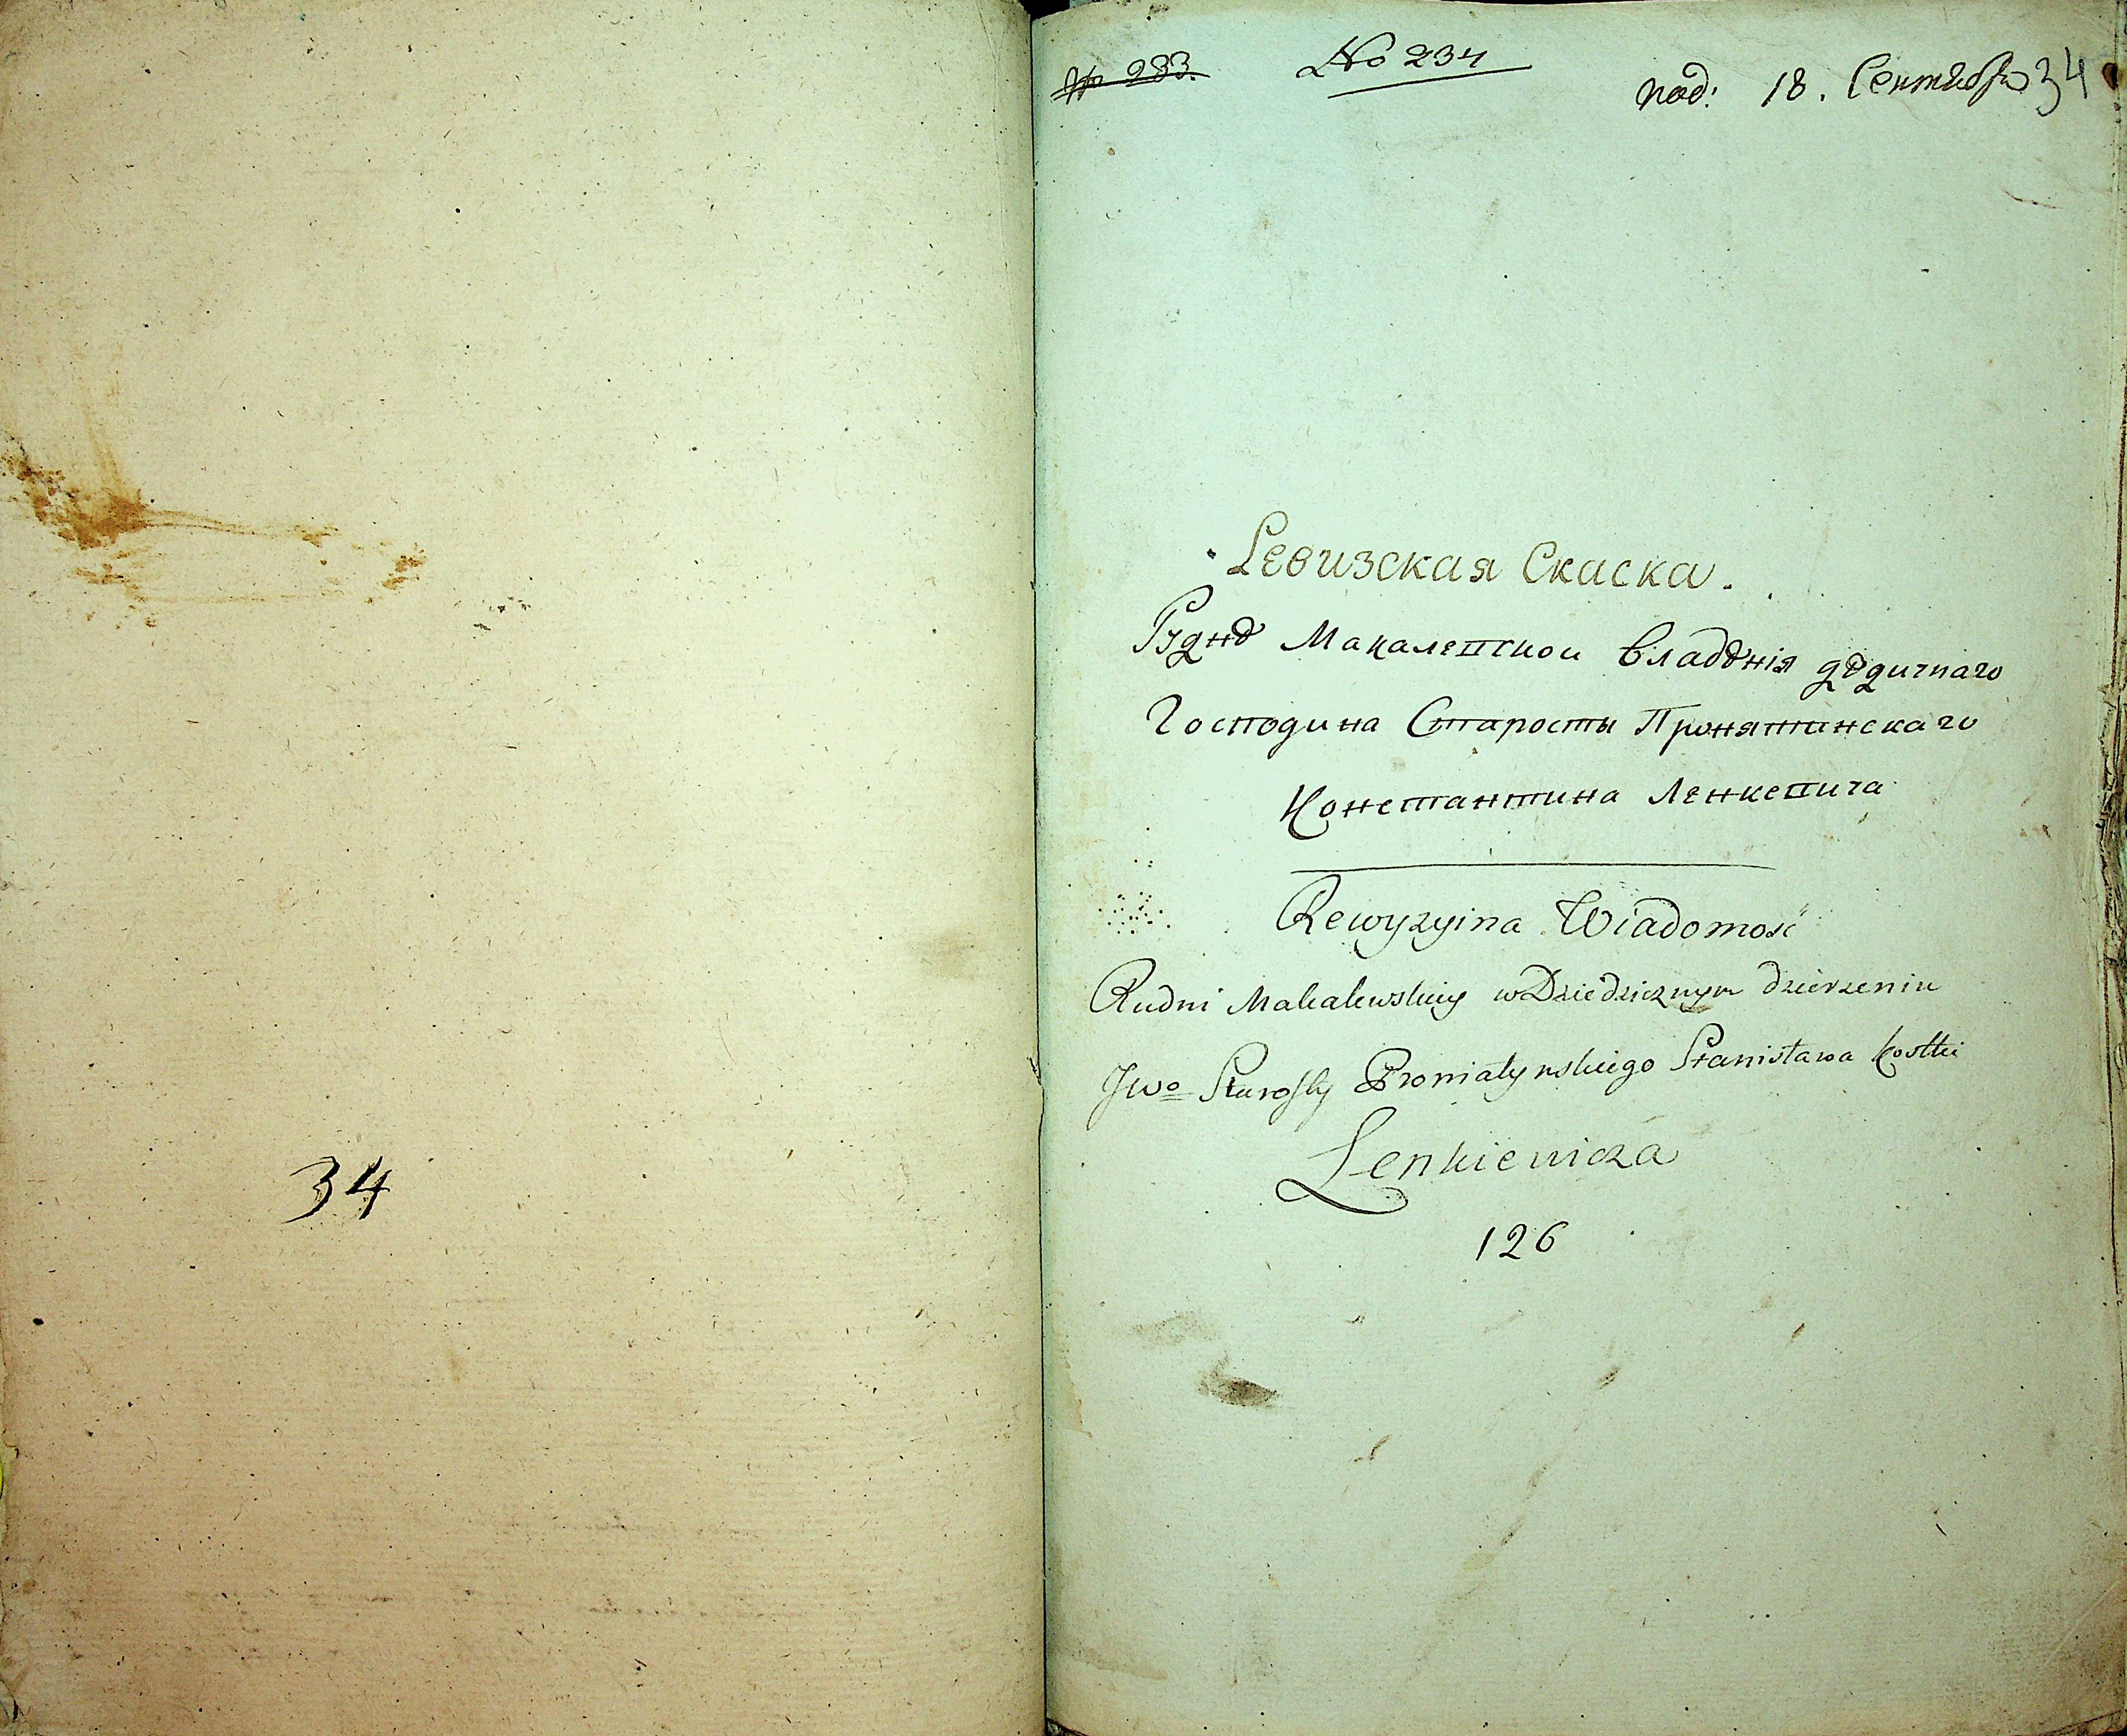 34
№ 233. № 234 под: 18. Сентября 34
Ревизская Скаска.
Руднѣ Макалевской владѣнія дѣдичнаго
Господина Старосты Пронятинскаго
Константина Ленкевича
Rewyzyina Wiadomosć
Rudni Makalewskiy w Dziedzicznym dzierzeniu
JWo Starosty Proniatynskiego Stanisława Kostki
Lenkiewicza
126